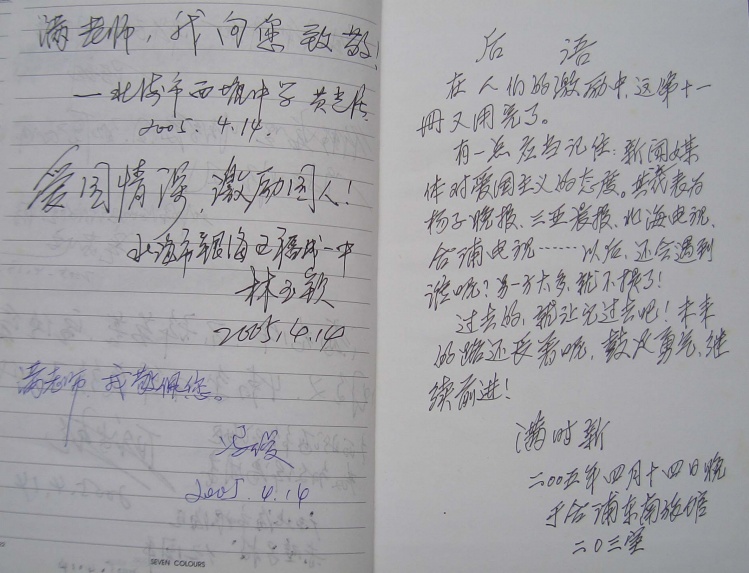 满老师，我向您致敬！
——北海市西塘中学 黄
2005.4.14.
爱国情深，激励国人！
北海市银海区福成一中
林玉颖
2005.4.14
满老师 我敬佩您。
2005.4.14
SEVEN COLOURS
后语
在人们的激励中，这第十一
册又用完了。
有一点应当记住：新闻媒
体对爱国主义的态度。其代表为
扬子晚报、三亚晨报、北海电视、
合浦电视……以后，还会遇到
谁呢？另一方太多，就不提了！
过去的，就让它过去吧！未来
的路还长着呢，鼓足勇气，继
续前进！
满时新
二00五年四月十四日晚
于合浦东南旅馆
二0三室